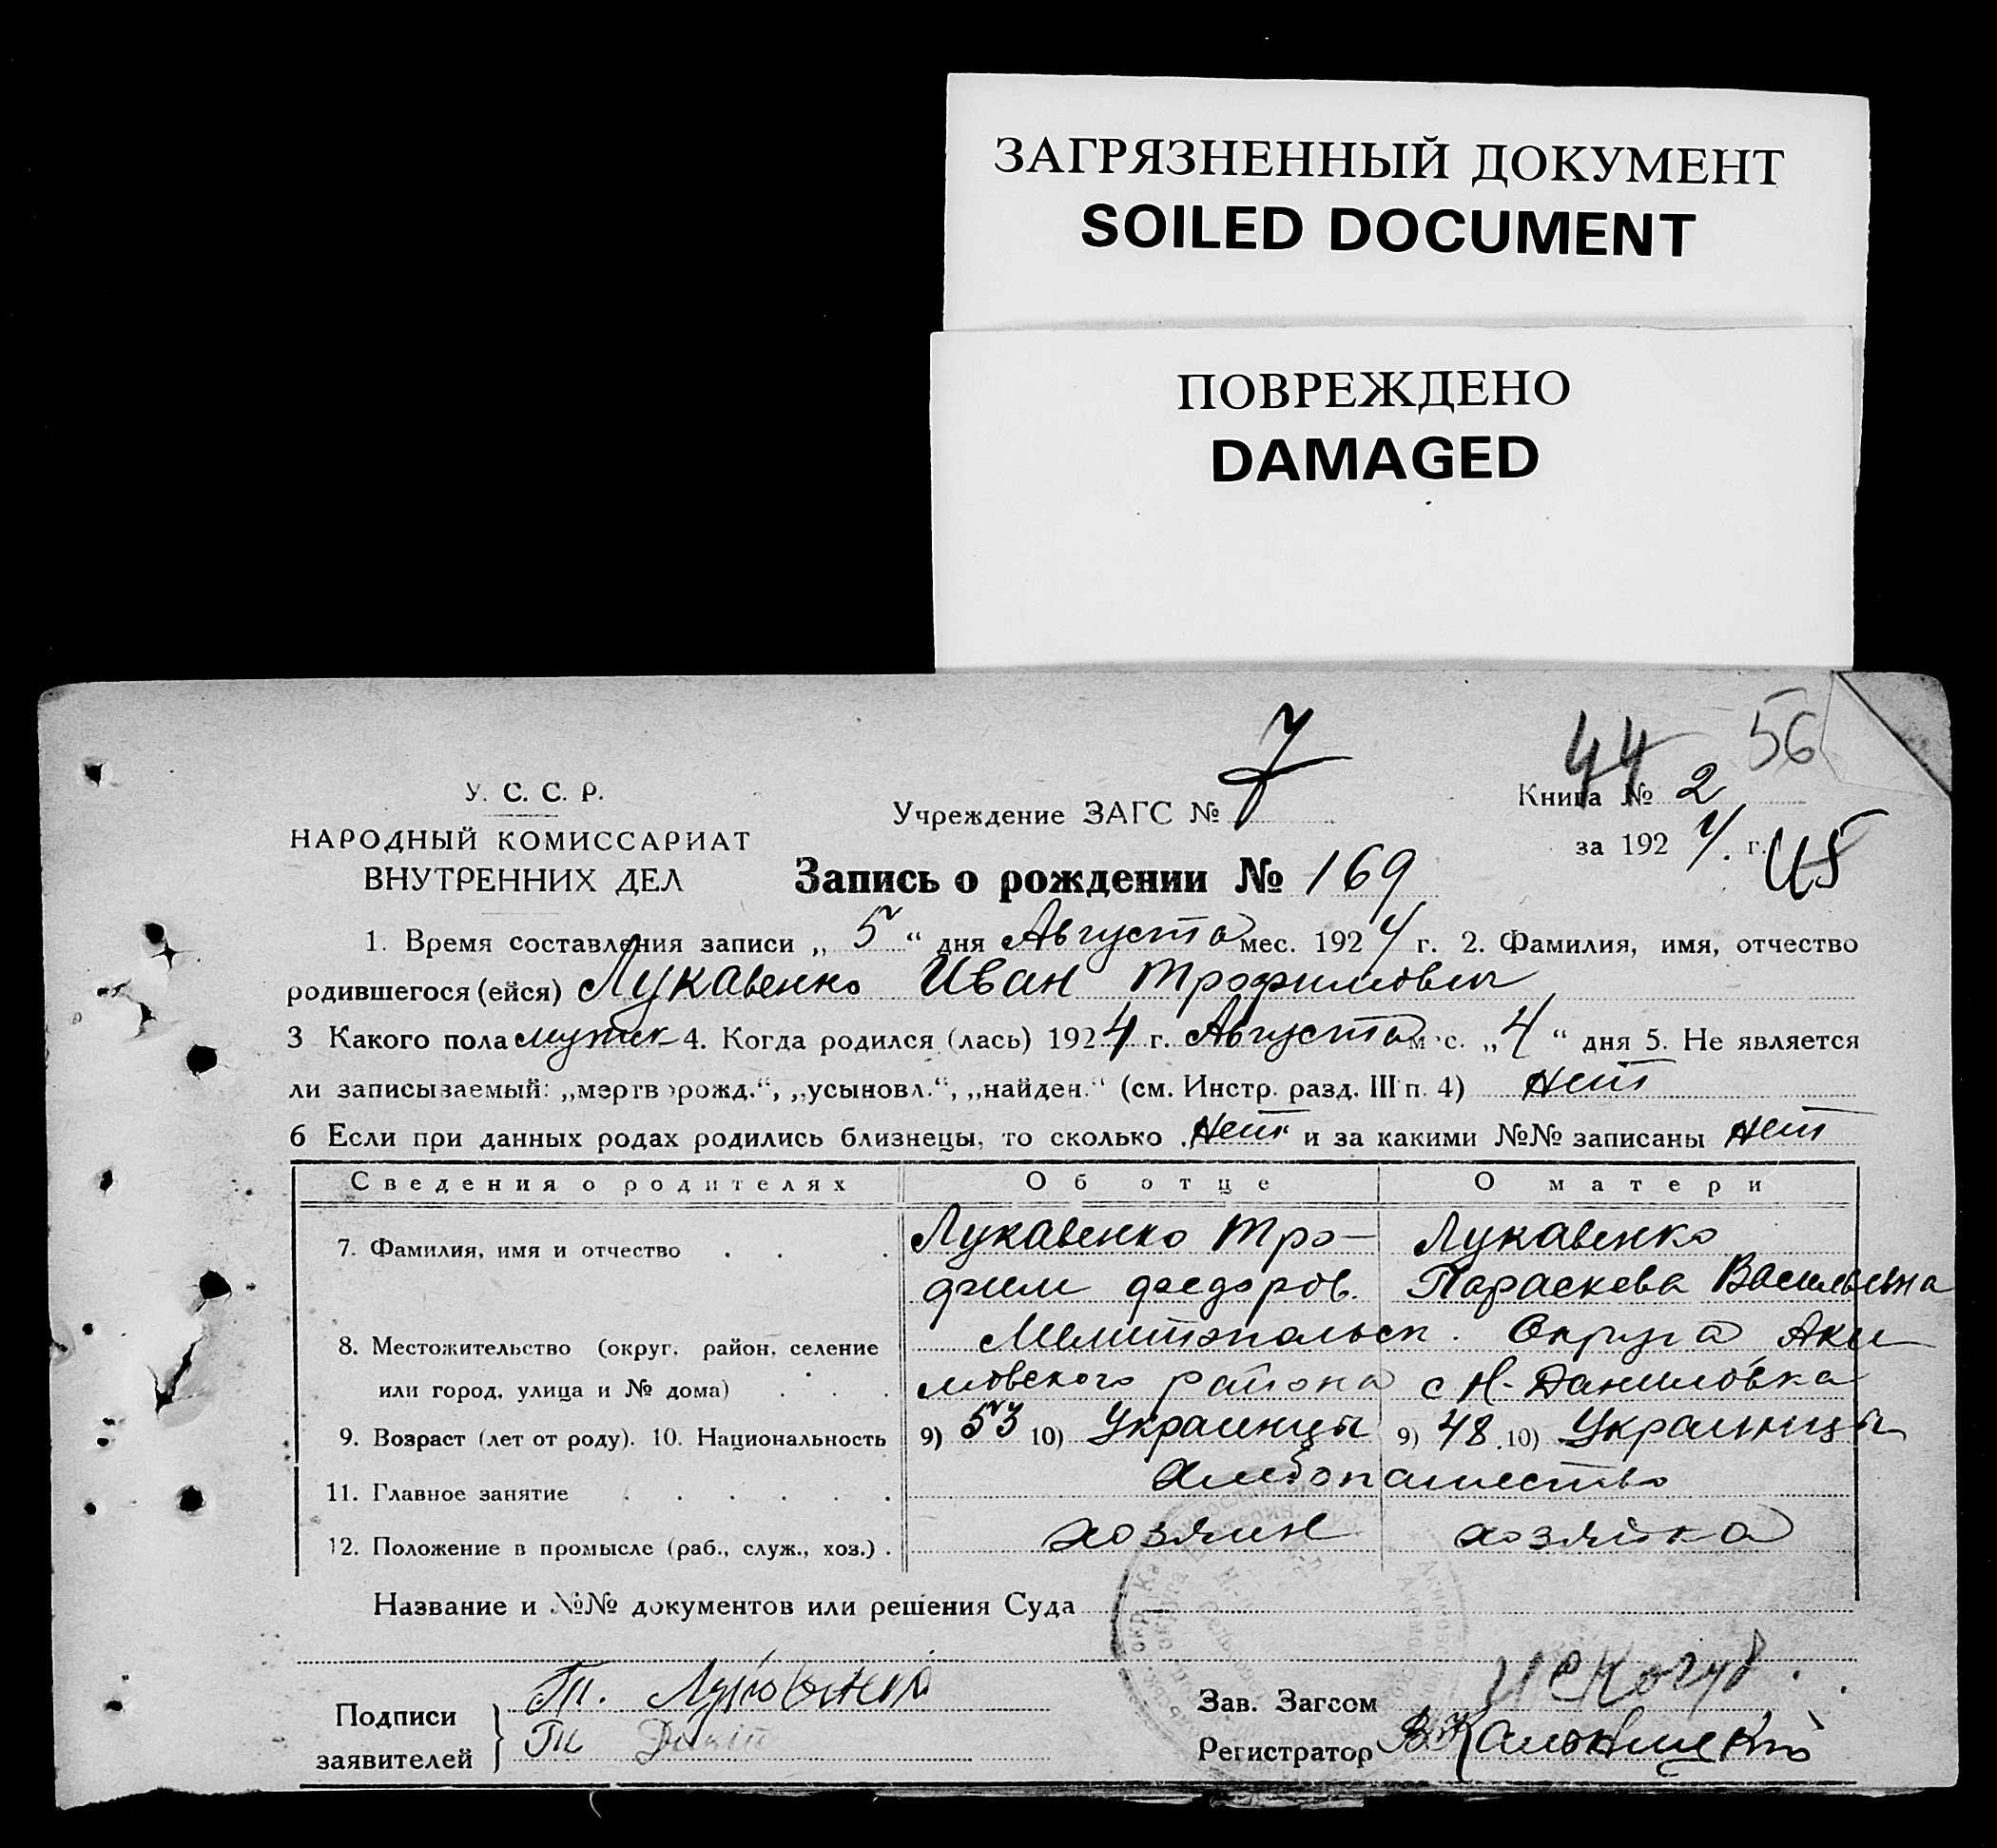 ЗАГРЯЗНЕННЫЙ ДОКУМЕНТ
SOILED DOCUMENT
ПОВРЕЖДЕНО
DAMAGED
44 56
У. С. С. Р.
НАРОДНЫЙ КОМИССАРИАТ
ВНУТРЕННИХ ДЕЛ
Учреждение ЗАГС № 7
Книга № 2
за 1924. г. 45
Запись о рождении № 169
1. Время составления записи „ 5 “ дня Августа мес. 1924 г. 2. Фамилия, имя, отчество
родившегося (ейся) Лукавенко Иван Трофимович
3 Какого пола мужск 4. Когда родился (лась) 1924 г. Августа м·с. „ 4 “ дня 5. Не является
ли записываемый: „мертворожд.“, „усыновл.“, „найден.“ (см. Инстр. разд. III п. 4) Нет
6 Если при данных родах родились близнецы, то сколько Нет и за какими №№ записаны Нет
Сведения о родителях Об отце О матери
7. Фамилия, имя и отчество . . . Лукавенко Тро- Лукавенко
фим федоров. Параскева Васильевна
8. Местожительство (округ, район, селение Мелитопольск. Округа Аки
или город, улица и № дома) . . . мовского района с Н-Даниловка
9. Возраст (лет от роду). 10. Национальность 9) 53 10) Украинцы 9) 48 10) Украинцы
11. Главное занятие . . . . . . хлебопашество
12. Положение в промысле (раб., служ., хоз.) . хозяин хозяйка
Название и №№ документов или решения Суда
Подписи
заявителей
Т. Лукавенко
Зав. Загсом
Регистратор